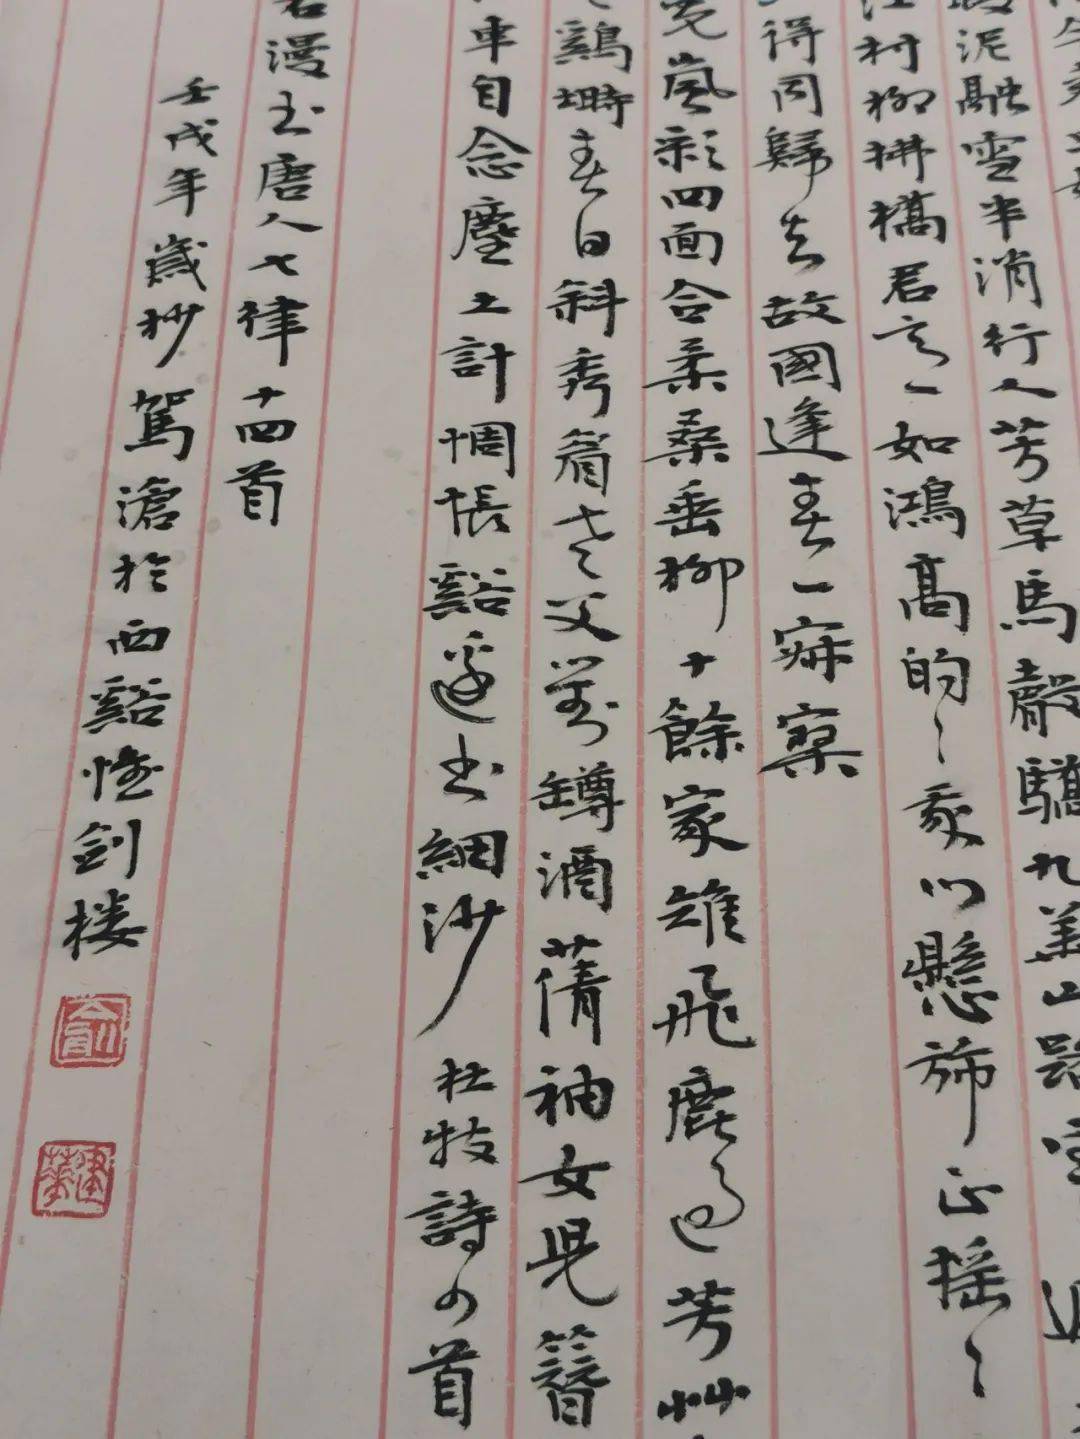 泥融雪半消行人芳草馬聲驕九華山路
江村柳拂橋君一如鴻高的〻我心懸旆正搖〻
得同歸去故國逢春一寂寥
嵐彩四面合柔桑垂柳十餘家雉飛鹿過芳艸
雞塒春日斜秀眉老父對罇酒蒨袖女兒簪
車自念塵土計惆悵谿邊書細沙 杜牧詩首
漫書唐人七律十四首
壬戌年歲杪駕滄於西谿劍楼
俞
建華